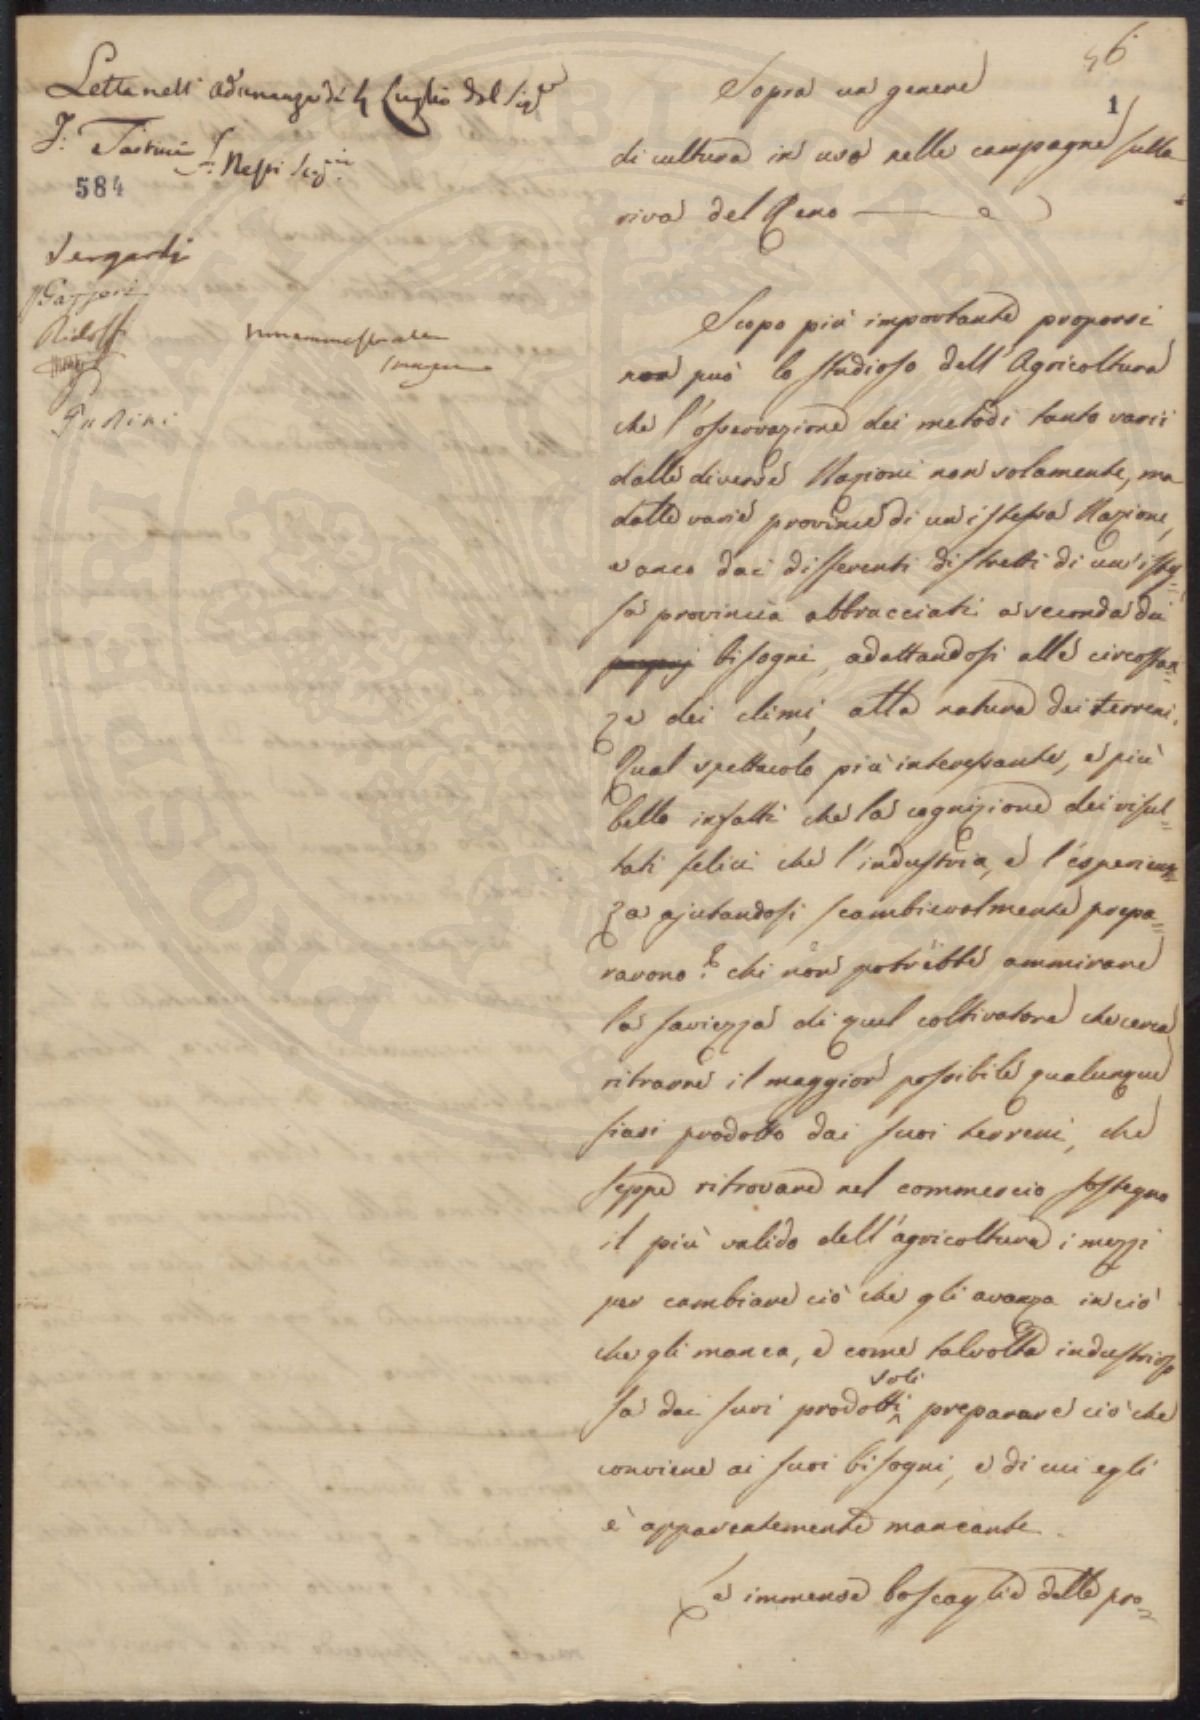 Letta nell' adunanza de' 4 Luglio dal Sig.r
F. Tartini
584
Sergardi
Gazzeri
Ridolfi
46
1
Sopra un genere
di cultura in uso nelle campagne sulla
riva del Reno
Scopo più importante proporsi
non può lo studioso dell'Agricoltura
che l'osservazione dei metodi tanto varii
dalle diverse Nazioni non solamente, ma
dalle varie provincie di un'istessa Nazione,
e anco dai differenti distretti di un'istes=
sa provincia abbracciati a seconda dei
bisogni, adattandosi alle circostan=
ze dei climi, alla natura dei terreni.
Qual spettacolo più interessante, e più
bello infatti che la cognizione dei risul=
tati felici che l'industria, e l'esperien=
za ajutandosi scambievolmente prepa=
rarono? chi non potrebbe ammirare
la saviezza di quel coltivatore che cerca
ritrarre il maggior possibile qualunque
siasi prodotto dai suoi terreni, che
seppe ritrovare nel commercio sostegno
il più valido dell'agricoltura i mezzi
per cambiare ciò che gli avanza in ciò
che gli manca, e come talvolta industrio
sa dai suoi prodotti soli preparare ciò che
conviene ai suoi bisogni, e di cui egli
è apparentemente mancante.
Le immense boscaglie delle pro=